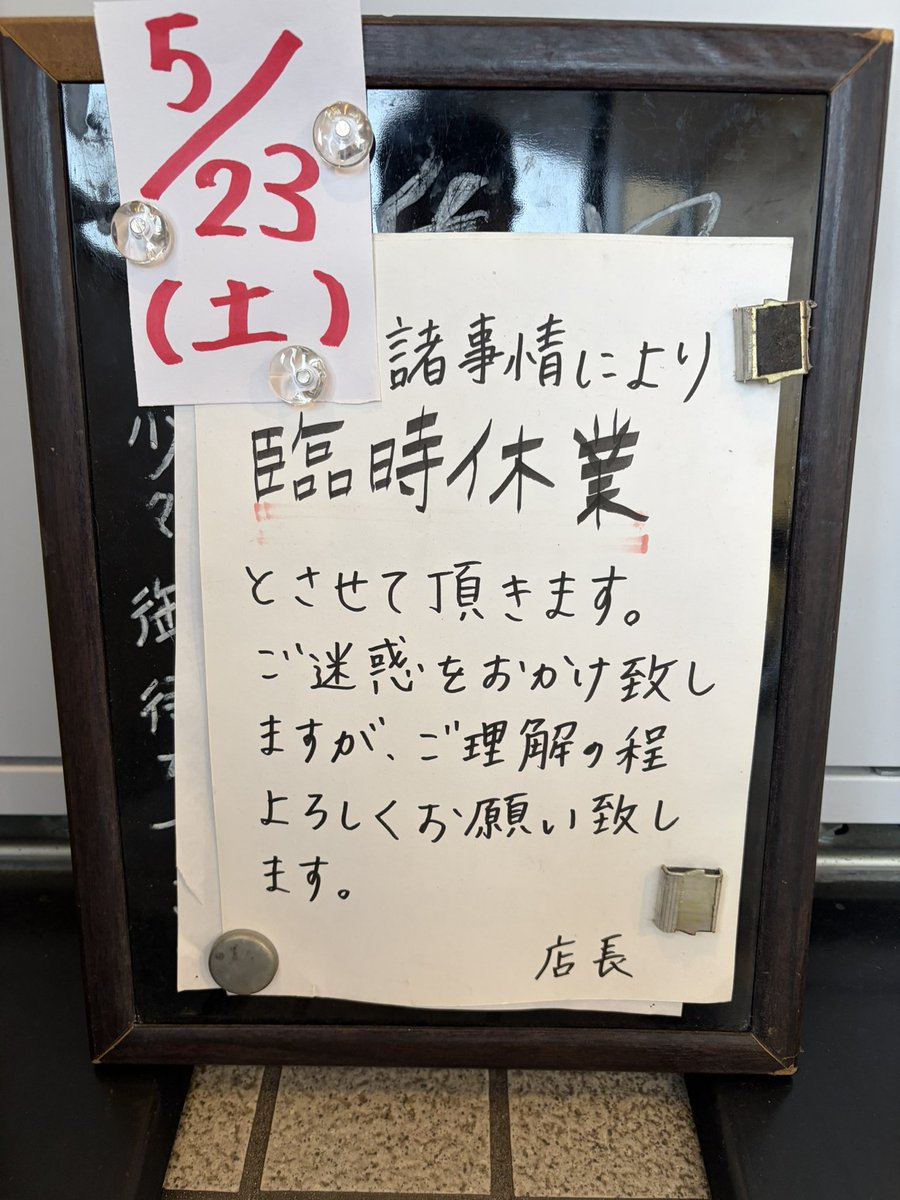 5/23
(土)
諸事情により
臨時休業
とさせて頂きます。
ご迷惑をおかけ致し
ますが、ご理解の程
よろしくお願い致し
ます。
店長
少々御待